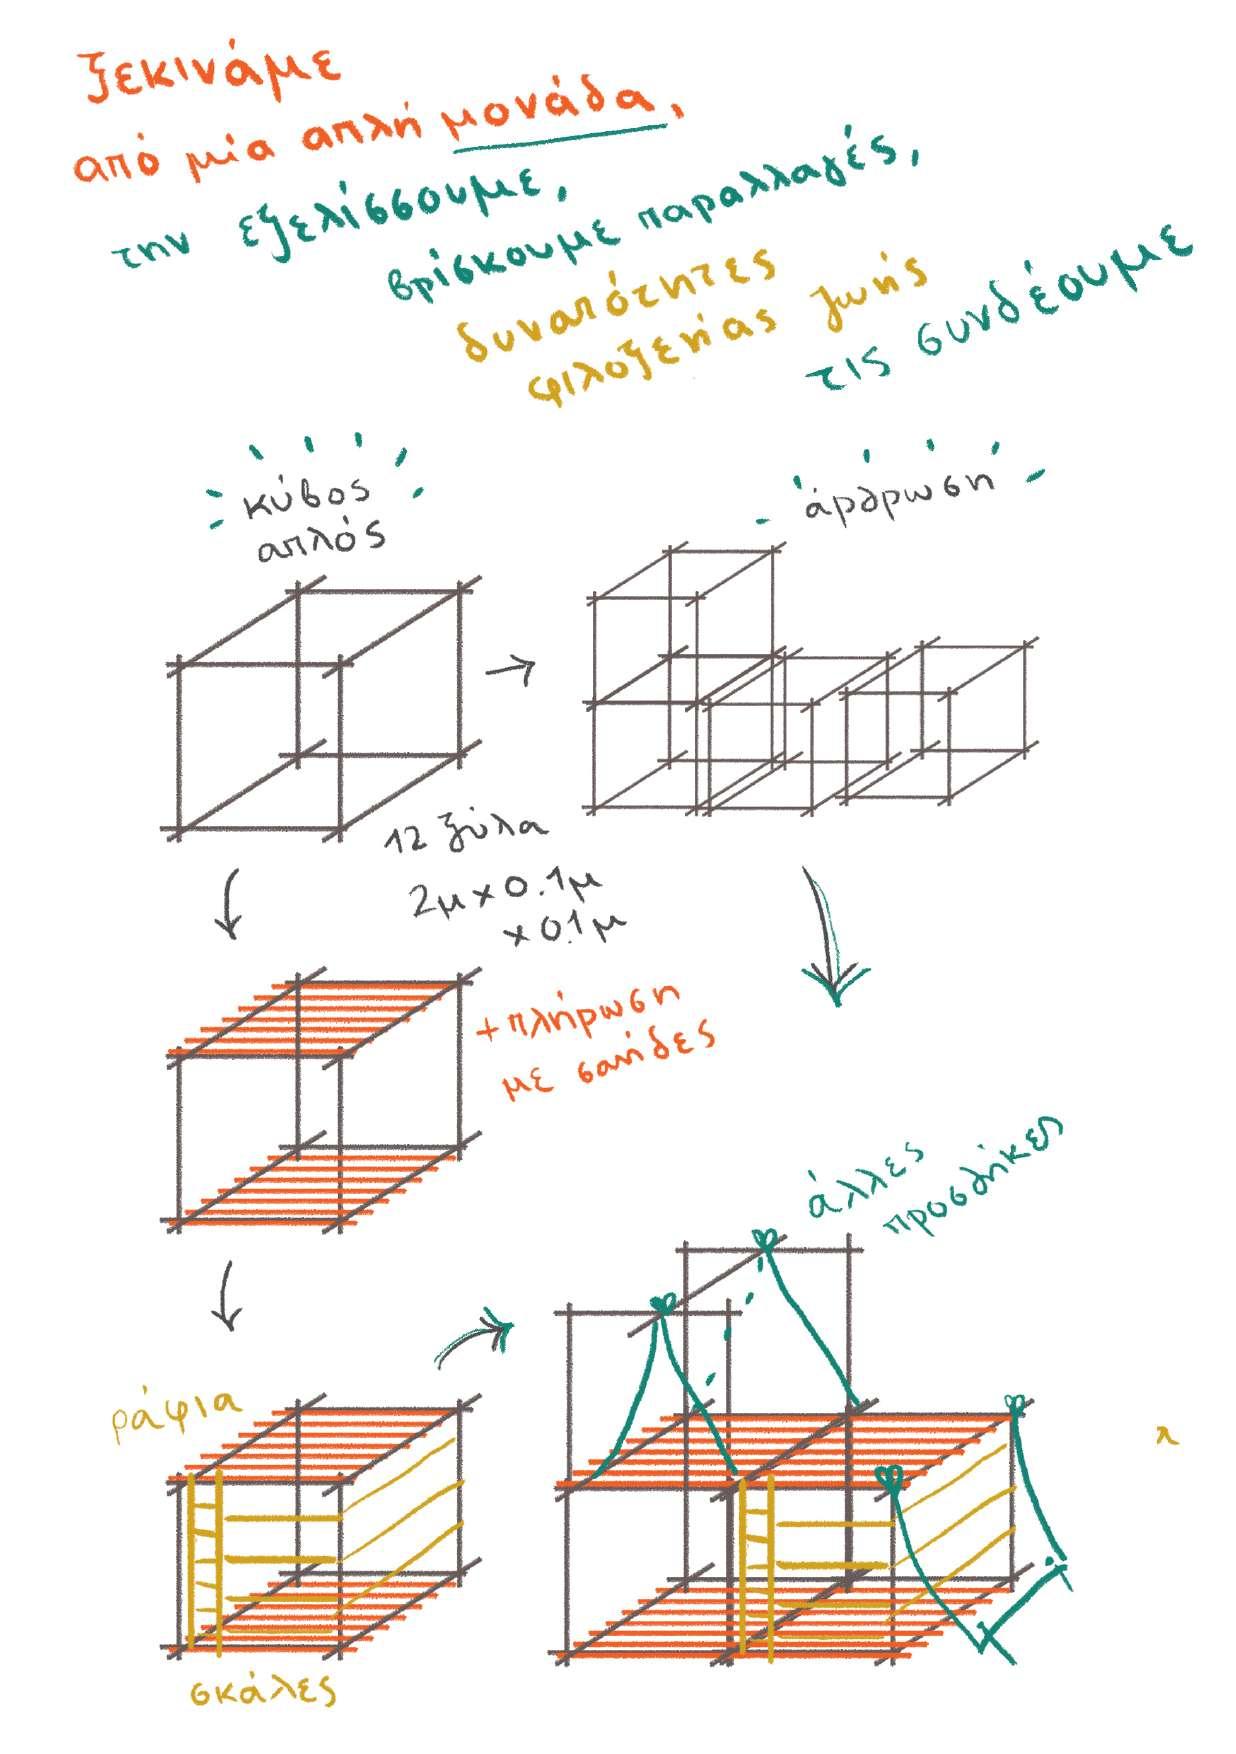 ξεκινάμε
από μία απλή μονάδα,
την εξελίσσουμε,
βρίσκουμε παραλλαγές,
δυνατότητες
φιλοξενίας ζωής
τις συνδέουμε
κύβος
απλός
άρθρωση
12 ξύλα
2μ x 0.1μ
x 0.1μ
+ πλήρωση
με σανίδες
άλλες
προσθήκες
ράφια
σκάλες